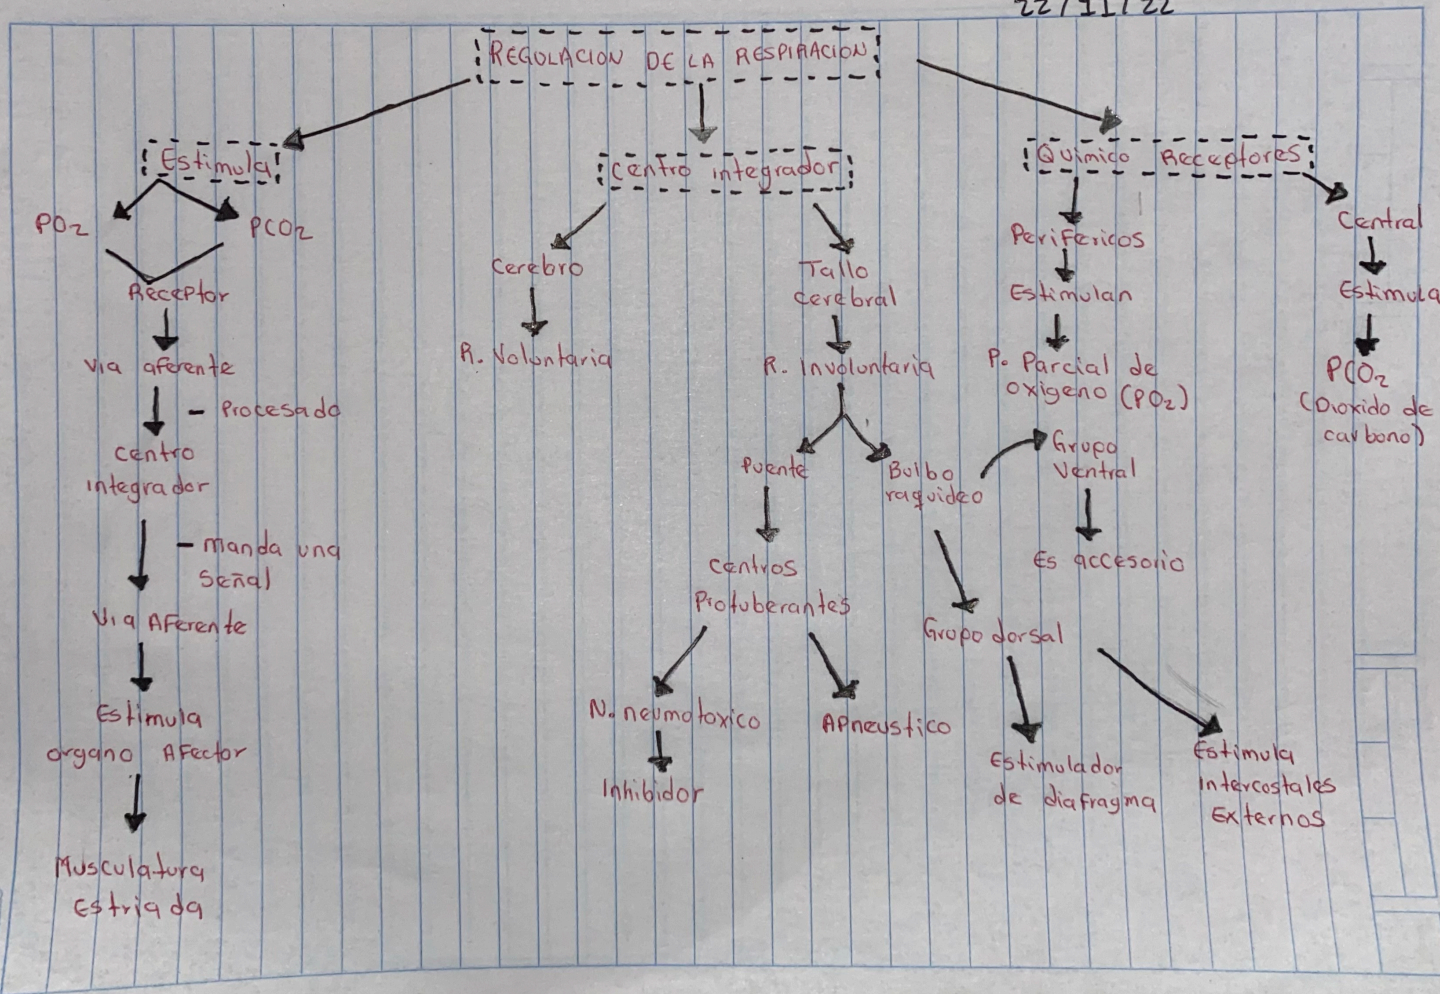 22/11/22
REGULACION DE LA RESPIRACION
Estimula
PO2
PCO2
Receptor
Via aferente
- Procesado
centro
integrador
- manda una
señal
Via AFerente
Estimula
organo AFector
Musculatura
Estriada
Centro integrador
Cerebro
R. Voluntaria
Tallo
cerebral
R. Involuntaria
Puente
Centros
Protuberantes
N. neumotoxico
Inhibidor
APneustico
Bulbo
raquideo
Grupo
Ventral
Es accesorio
Grupo dorsal
Estimulador
de diafragma
Estimula
intercostales
Externos
Quimico Receptores
PeriFericos
Estimulan
P. Parcial de
oxigeno (PO2)
Central
Estimula
PCO2
(Dioxido de
carbono)